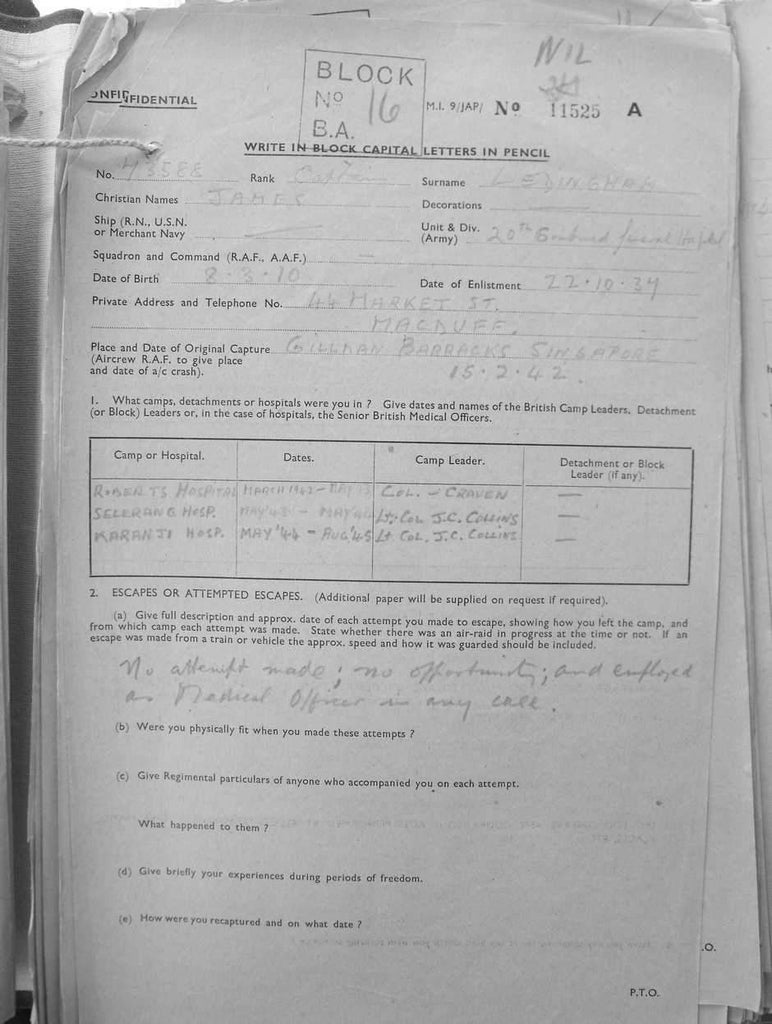 NIL
BLOCK
No 16
B.A.
ONFIDENTIAL
M.I. 9/JAP/ No 11525 A
WRITE IN BLOCK CAPITAL LETTERS IN PENCIL
No. 73588 Rank Captain Surname LEDINGHAM
Christian Names JAMES Decorations
Ship (R.N., U.S.N. or Merchant Navy
Unit & Div. (Army) 20th Combined General Hospital
Squadron and Command (R.A.F., A.A.F.)
Date of Birth 8.3.10 Date of Enlistment 22.10.39
Private Address and Telephone No. 44 MARKET ST.
MACDUFF.
Place and Date of Original Capture GILLMAN BARRACKS SINGAPORE
(Aircrew R.A.F. to give place
and date of a/c crash). 15.2.42.
1. What camps, detachments or hospitals were you in ? Give dates and names of the British Camp Leaders, Detachment
(or Block) Leaders or, in the case of hospitals, the Senior British Medical Officers.
Camp or Hospital. Dates. Camp Leader. Detachment or Block Leader (if any).
ROBERTS HOSPITAL MARCH 1942 - MAY COL. - CRAVEN —
SELERANG HOSP. MAY '43 - MAY '44 Lt. Col J.C. COLLINS —
KARANJI HOSP. MAY '44 - AUG '45 Lt. COL. J.C. COLLINS —
2. ESCAPES OR ATTEMPTED ESCAPES. (Additional paper will be supplied on request if required).
(a) Give full description and approx. date of each attempt you made to escape, showing how you left the camp, and
from which camp each attempt was made. State whether there was an air-raid in progress at the time or not. If an
escape was made from a train or vehicle the approx. speed and how it was guarded should be included.
No attempt made; no opportunity; and employed
as Medical Officer in any case.
(b) Were you physically fit when you made these attempts ?
(c) Give Regimental particulars of anyone who accompanied you on each attempt.
What happened to them ?
(d) Give briefly your experiences during periods of freedom.
(e) How were you recaptured and on what date ?
.O.
P.T.O.